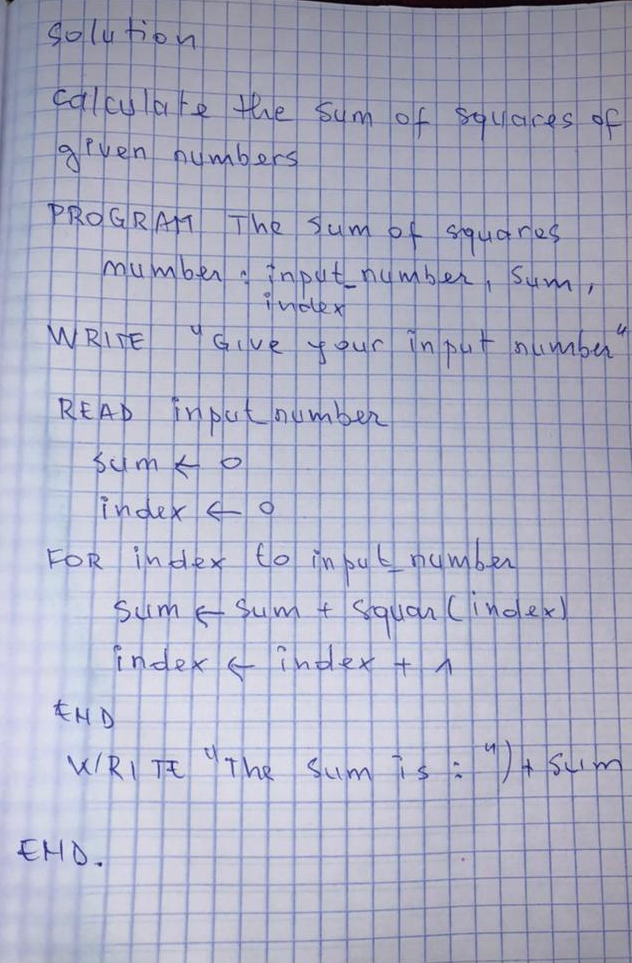 solution
calculate the sum of squares of
given numbers
PROGRAM The sum of squares
number : input_number, sum,
index
WRITE "Give your input number"
READ input number
sum ← 0
index ← 0
FOR index to input_number
sum ← sum + squar(index)
index ← index + 1
END
WRITE "The sum is : ") + sum
END.